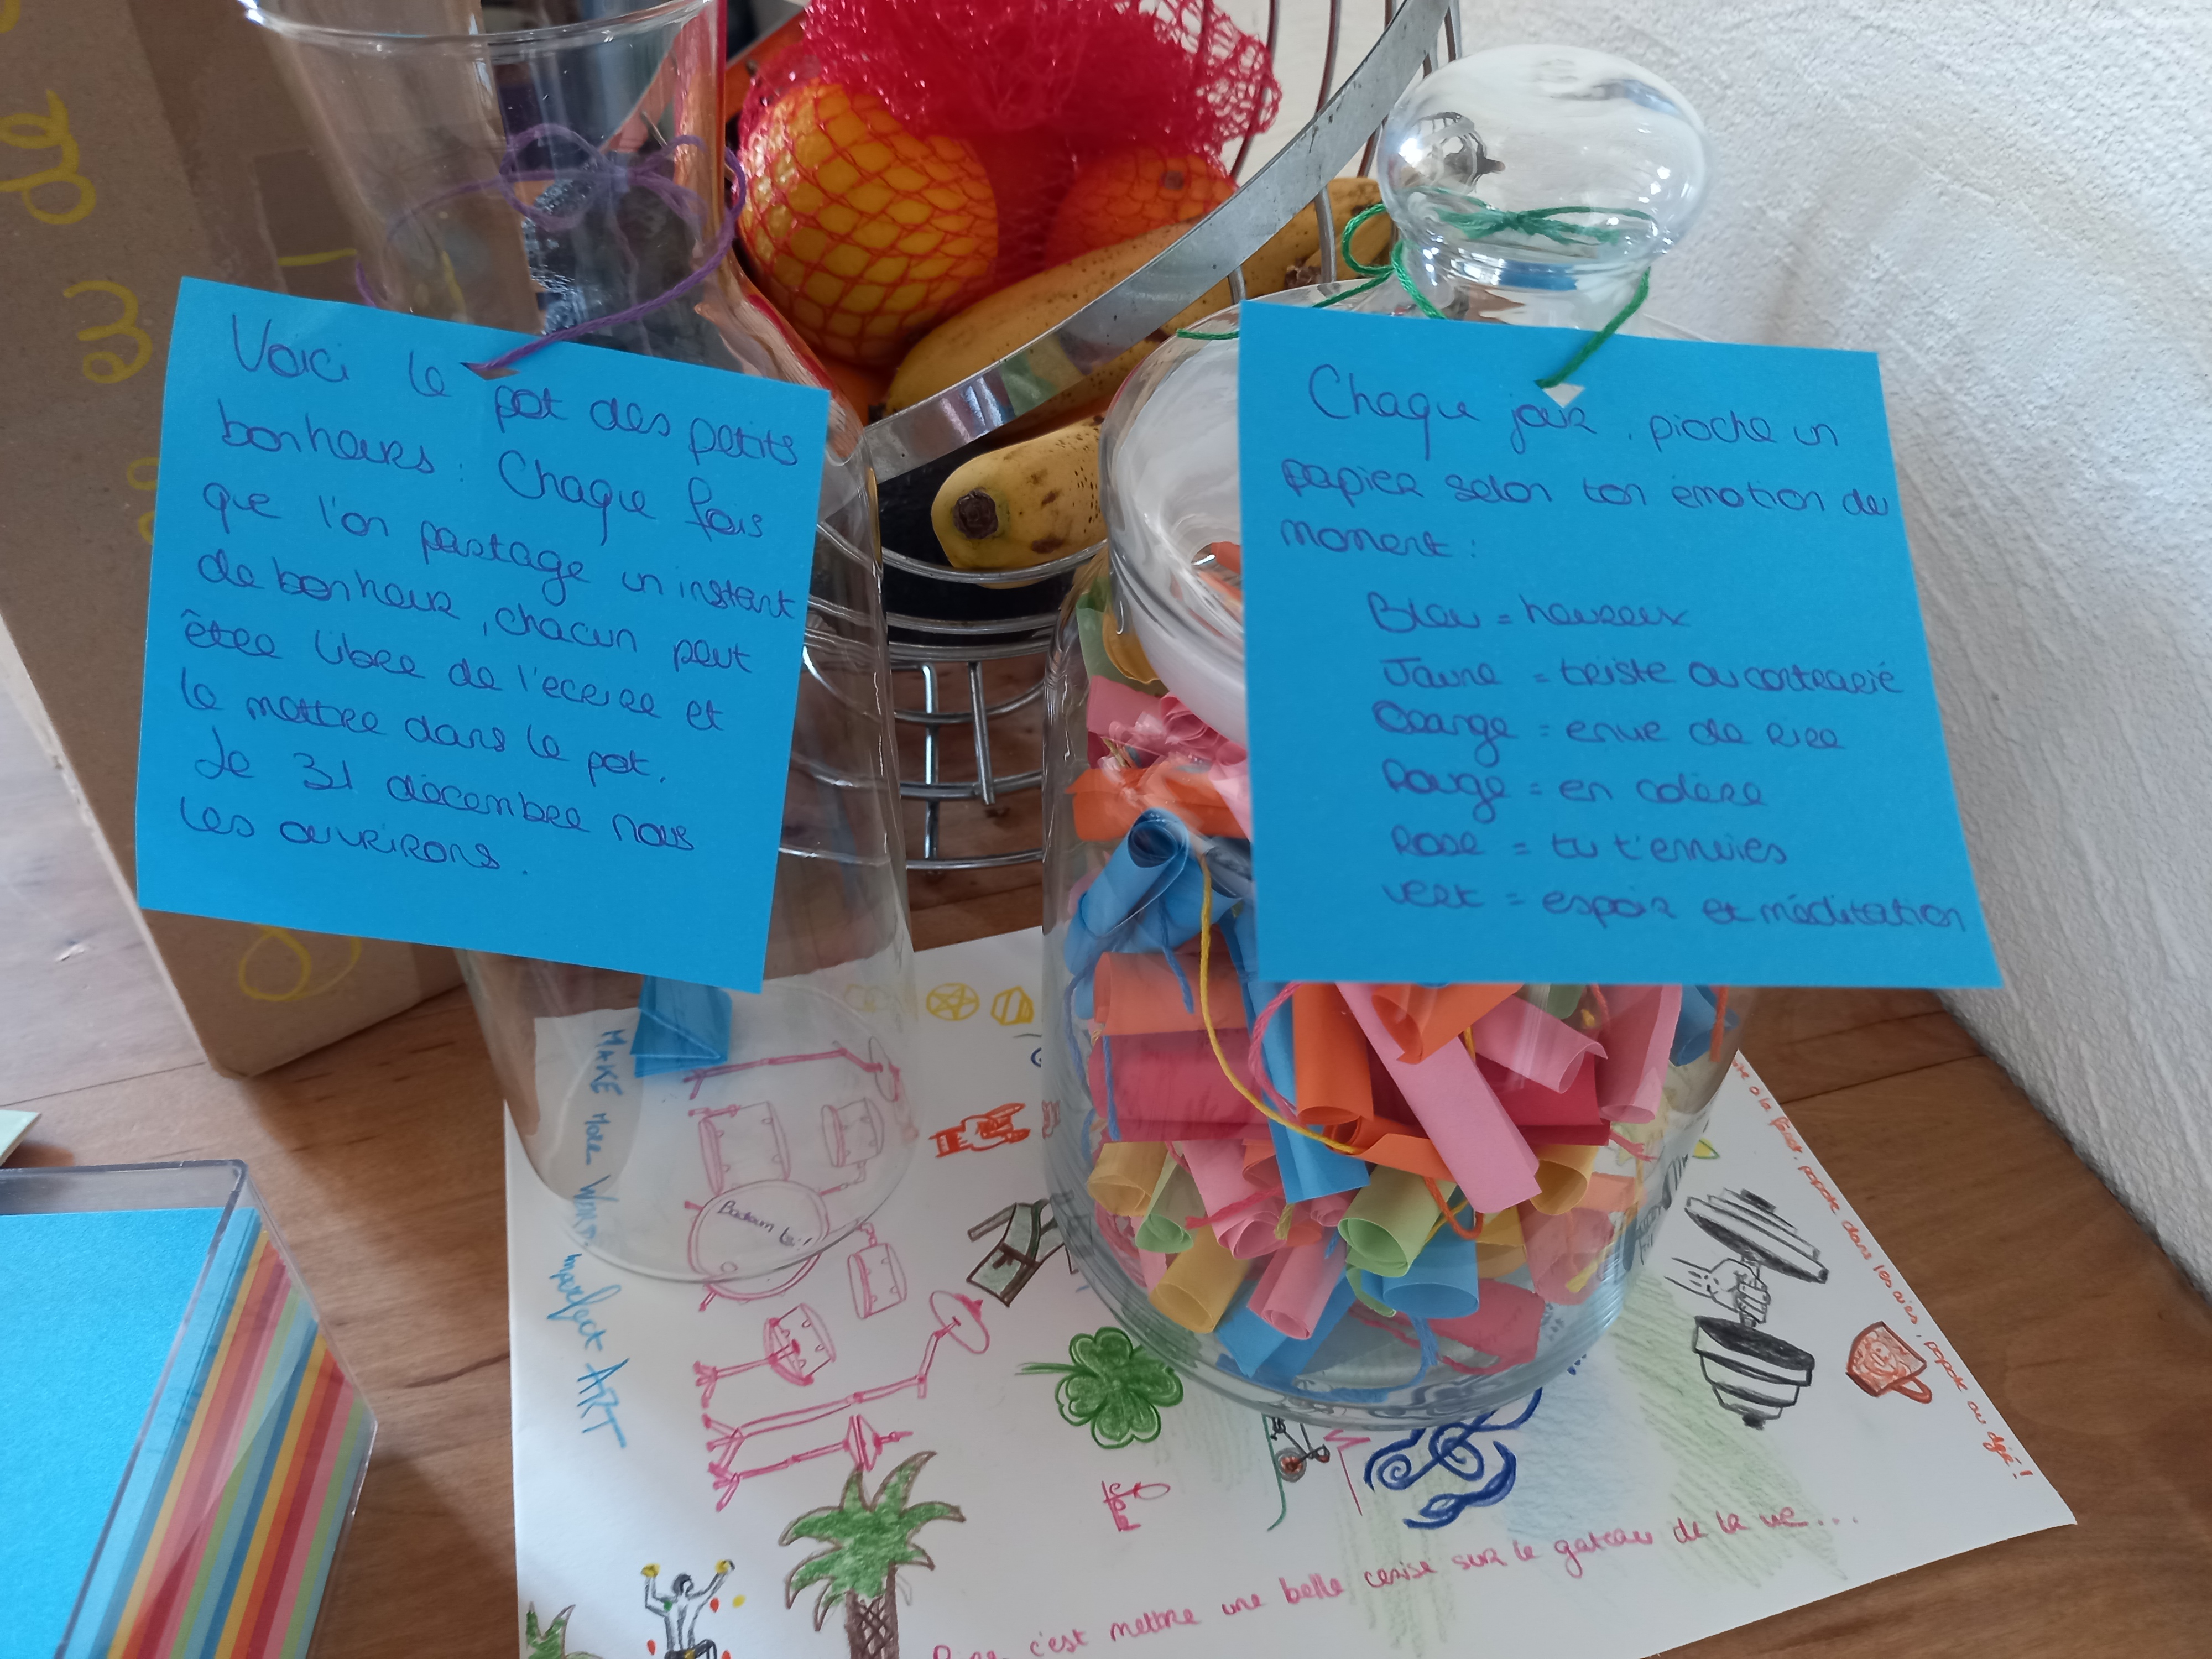 Voici le pot des petits
bonheurs : Chaque fois
que l'on partage un instant
de bonheur, chacun peut
être libre de l'ecrire et
le mettre dans le pot.
Le 31 décembre nous
les ouvrirons.
Chaque jour, pioche un
papier selon ton émotion du
moment :
Bleu = heureux
Jaune = triste ou contrarié
Orange = envie de rire
Rouge = en colère
Rose = tu t'ennuies
Vert = espoir et méditation
MAKE MORE
ART
Badoum ts!
papote dans les airs, papote au
c'est mettre une belle cerise sur le gateau de la vie...